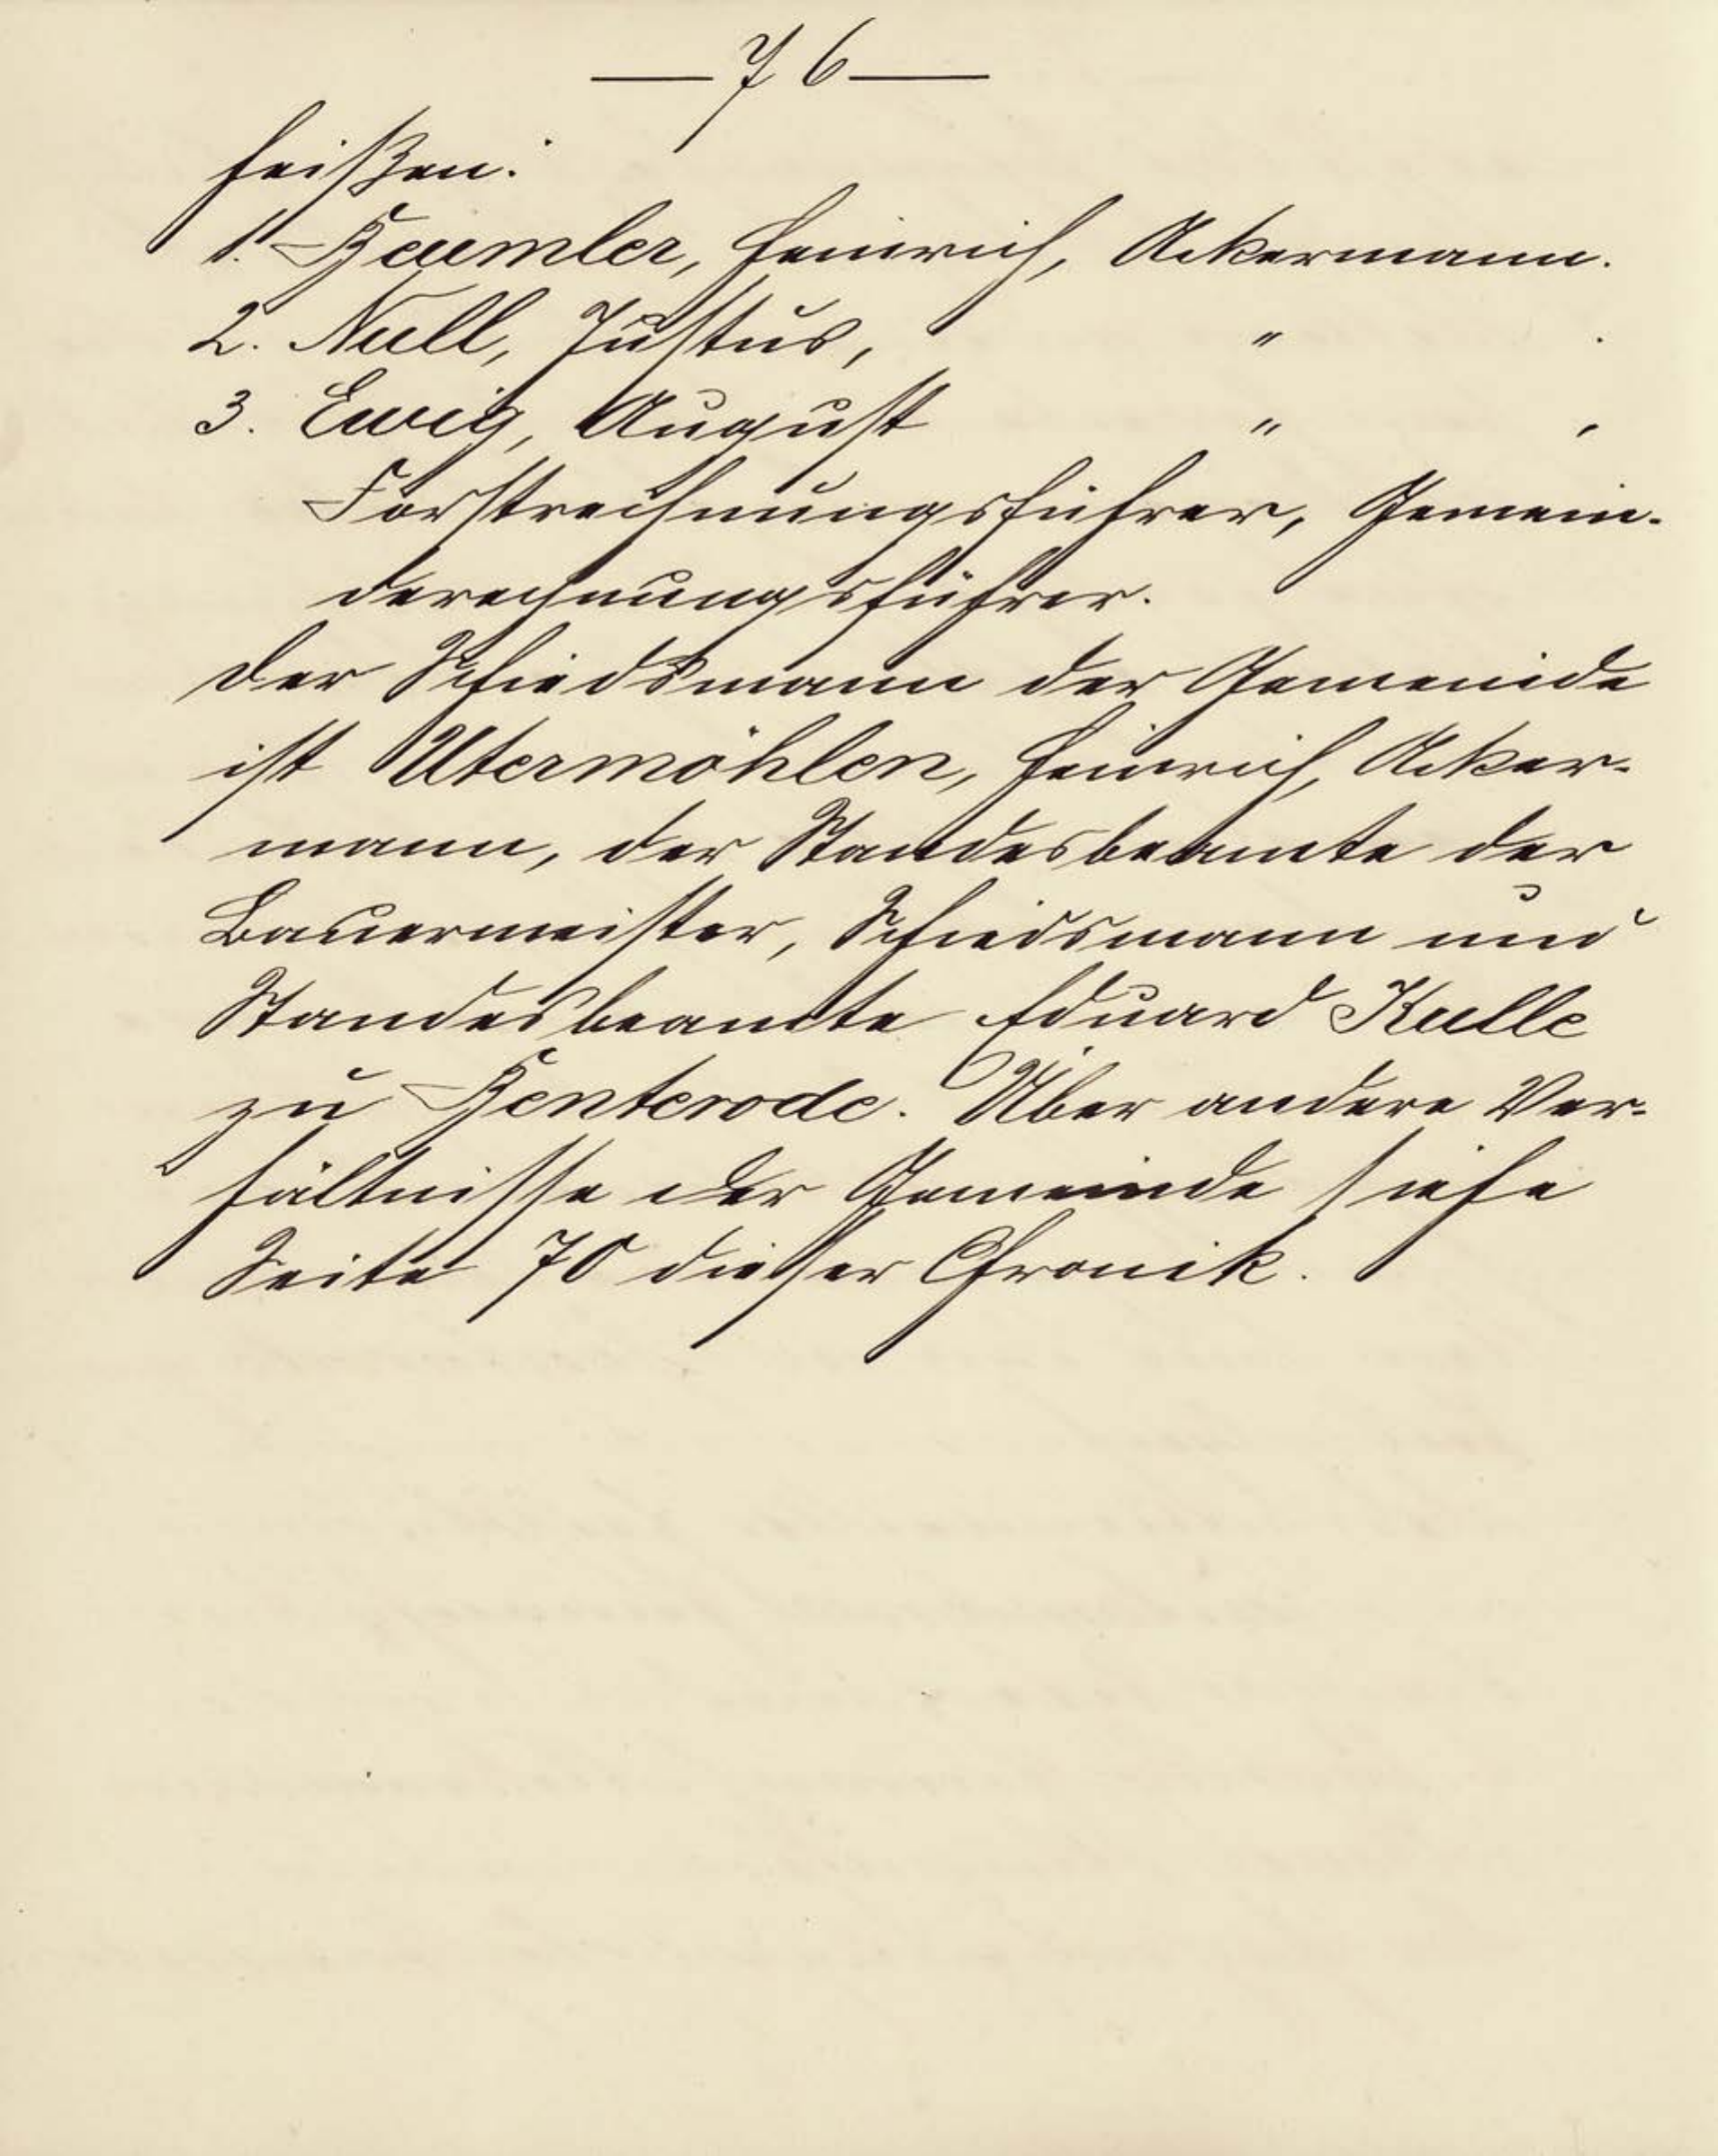 — 76 —
heißen:
1. Beumler, Heinrich, Ackermann.
2. Null, Justus, " .
3. Ewig, August " .
Forstrechnungsführer, Gemein-
derechnungsführer.
Der Schiedsmann der Gemeinde
ist Utermöhlen, Heinrich, Acker-
mann, der Standesbeamte der
Bauermeister, Schiedsmann und
Standesbeamte Eduard Kulle
zu Benterode. Über andere Ver-
hältnisse der Gemeinde siehe
Seite 70 dieser Chronik.